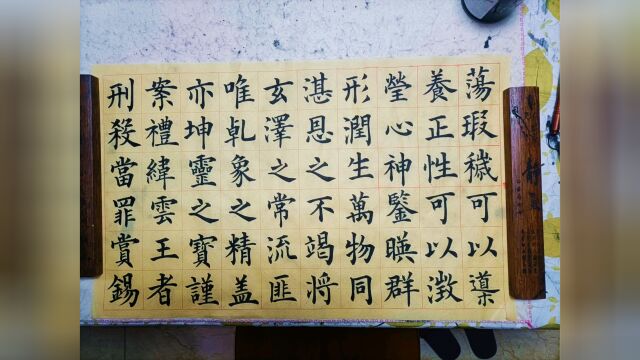 蕩瑕穢可以導
養正性可以澂
瑩心神鍳暎群
形潤生萬物同
湛恩之不竭將
玄澤之常流匪
唯乹象之精盖
亦坤靈之寶謹
案禮緯雲王者
刑殺當罪賞錫